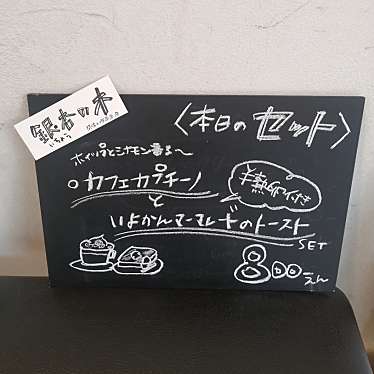 銀杏の木
いちょう
〈本日のセット〉
ホイップとシナモン香る〜
○カフェカプチーノ
と
半熟卵付き
いよかんマーマレードのトースト
SET
800えん